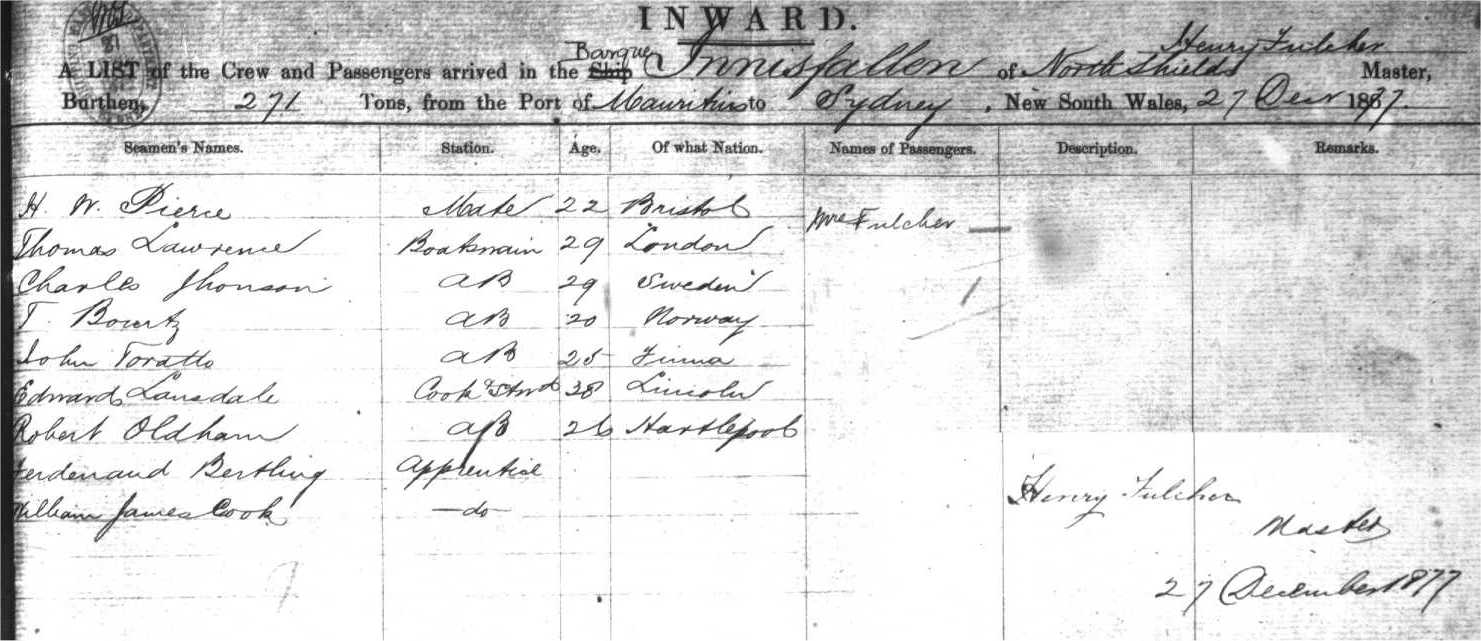 INWARD.
Barque Henry Fulcher
A LIST of the Crew and Passengers arrived in the Ship Innisfallen of North Shields Master,
Burthen, 271 Tons, from the Port of Mauritius to Sydney, New South Wales, 27 Decr 1877.
Seamen's Names. Station. Age. Of what Nation. Names of Passengers. Description. Remarks.
H. W. Pierce Mate 22 Bristol Mrs Fulcher
Thomas Lawrence Boatswain 29 London
Charles Jhonson AB 29 Sweden
T. Bowrtz AB 20 Norway
John Toratto AB 25 Finna
Edward Lansdale Cook & Stwd 38 Lincoln
Robert Oldham AB 26 Hartlepool
Ferdenand Bertling Apprentice
William James Cook do
Henry Fulcher
Master
27 December 1877